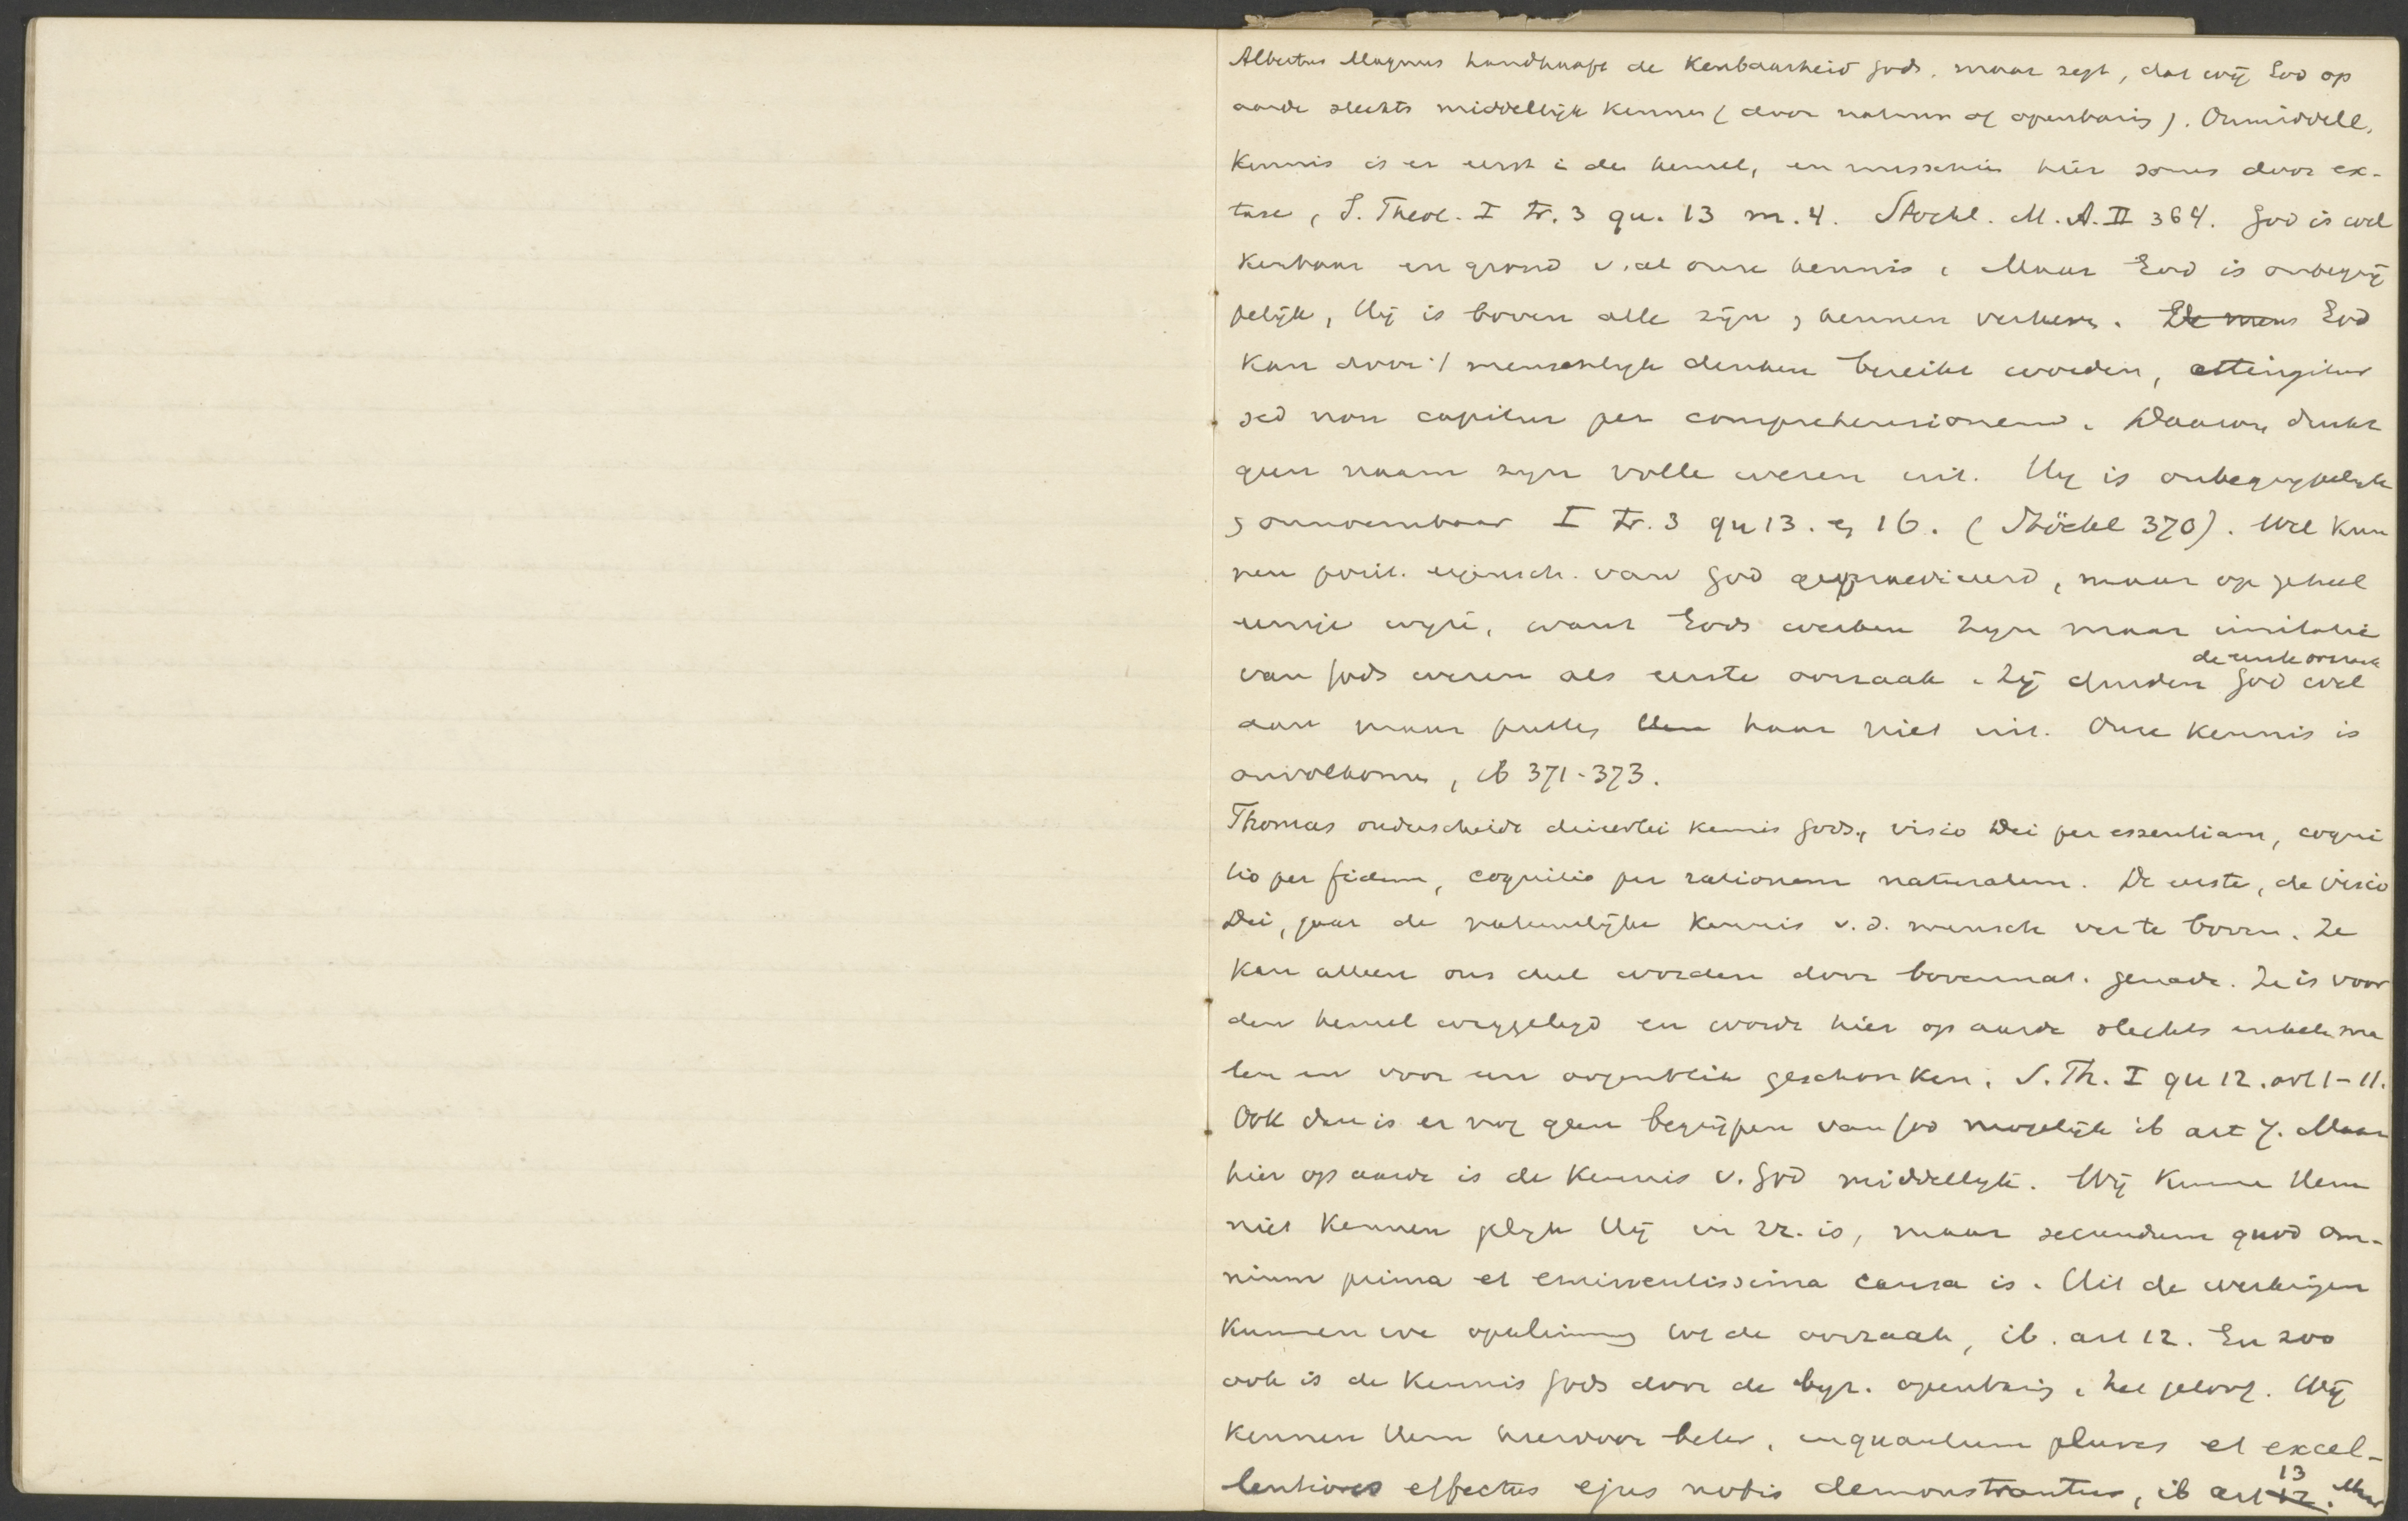 Albertus Magnus handhaaft de Kenbaarheid Gods, maar zegt, dat wij God op
aarde slechts middellijk kennen (door natuur of openbaring). Onmiddell.
Kennis is er eerst i de hemel, en misschien hier soms door ex-
tase, S. Theol. I tr. 3 qu. 13 m. 4. Stöckl. M.A. II 364. God is wel
Kenbaar en grond v. al onze kennis. Maar God is onbegrij
pelijk, Hij is boven alle zijn, kennen verheven. De mens God
Kan door 't menschelijk denken bereikt worden, attingitur
sed non capitur per comprehensionem. Daarom drukt
geen naam zijn volle wezen uit. Hij is onbegrijpelijk
, onnoembaar I tr. 3 qu 13. en 16. (Stöckl 370). Wel kun
nen posit. eigensch. van God gepraediceerd, maar op geheel
eenige wijze, want Gods werken zijn maar imitatie
van Gods wezen als eerste oorzaak. Zij duiden God wel
de eerste oorzaak
aan maar putten Hem haar niet uit. Onze kennis is
onvolkomen, ib 371-373.
Thomas onderscheidt drieerlei kennis Gods, visio Dei per essentiam, cogni
tio per fidem, cognitio per rationem naturalem. De eerste, de visio
Dei, gaat de natuurlijke kennis v.d. mensch ver te boven. Ze
Kan alleen ons deel worden door bovennat. genade. Ze is voor
den hemel weggelegd en wordt hier op aarde slechts enkele ma
len en voor een oogenblik geschonken. S. Th. I qu 12. art 1-11.
Ook dan is er nog geen begrijpen van God mogelijk ib art 7. Maar
hier op aarde is de Kennis v. God middellijk. Wij kunnen Hem
niet kennen gelijk Hij in zz. is, maar secundum quod om-
nium prima et eminentissima causa is. Uit de werkingen
Kunnen we opklimmen tot de oorzaak, ib. art 12. En zoo
ook is de Kennis Gods door de byz. openbaring, het geloof. Wij
Kennen Hem hierdoor beter, inquantum plures et excel-
lentiores effectus ejus nobis demonstrantur, ib art 12 13. Maar